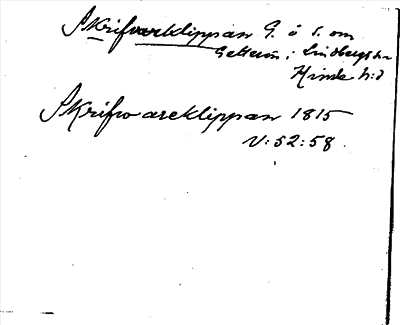 Skrifvareklippan G. ö S. om
Getterön i Lindbergs sn
Himle hd
Skrifvareklippan 1815
V:52:58.